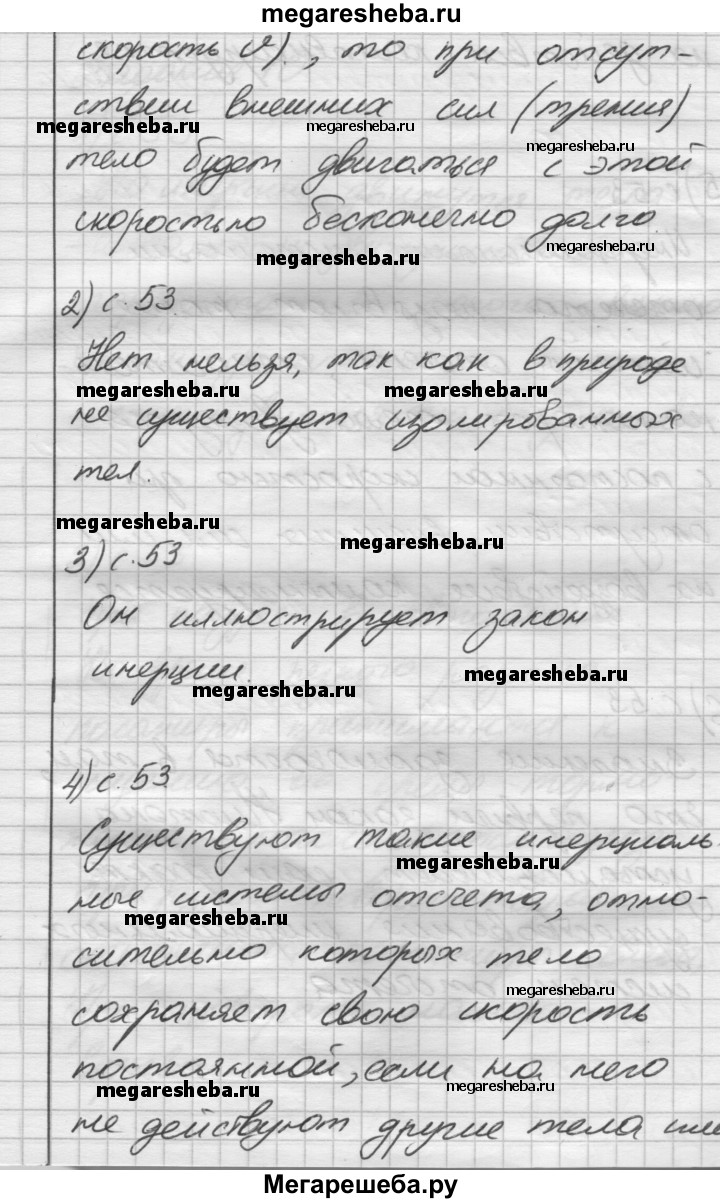 megaresheba.ru
скорость v)., то при отсут-
ствии внешних сил (трения)
megaresheba.ru megaresheba.ru
тело будет двигаться с этой
megaresheba.ru
скоростью бесконечно долго.
megaresheba.ru megaresheba.ru
2) с. 53.
Нет нельзя, так как в природе
megaresheba.ru megaresheba.ru
не существует изолированных
тел.
megaresheba.ru megaresheba.ru
3) с. 53
Он иллюстрирует закон
инерции.
megaresheba.ru megaresheba.ru
4) с. 53.
Существуют такие инерциаль-
megaresheba.ru
ные системы отсчета, отно-
megaresheba.ru
сительно которых тело
megaresheba.ru
сохраняет свою скорость
постоянной, если на него
megaresheba.ru megaresheba.ru
не действуют другие тела или
Мегарешеба.ру